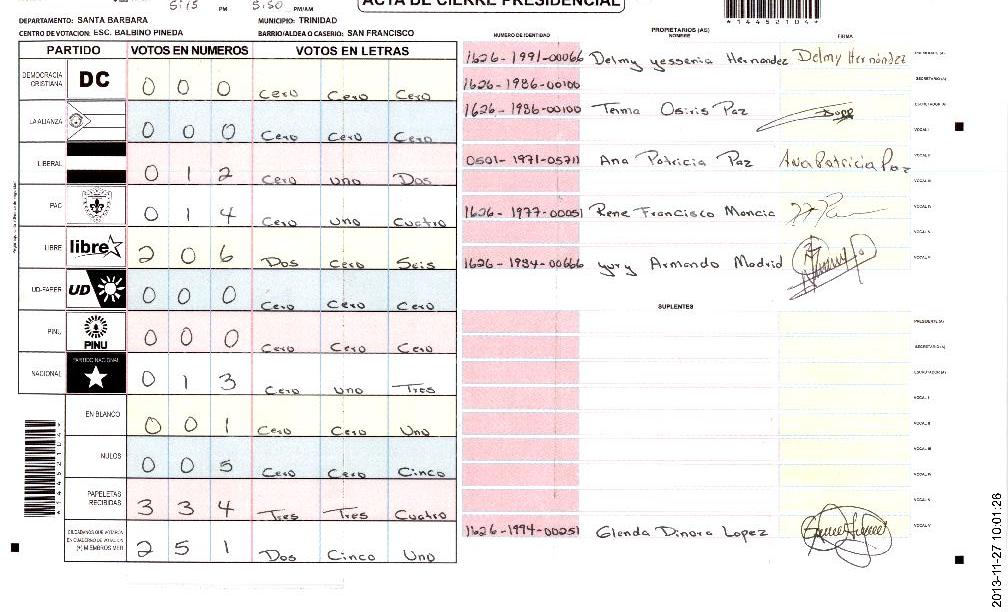 5:15 PM 5:50 PM/AM
ACTA DE CIERRE PRESIDENCIAL
*14452104*
DEPARTAMENTO: SANTA BARBARA MUNICIPIO: TRINIDAD
CENTRO DE VOTACION: ESC. BALBINO PINEDA BARRIO/ALDEA O CASERIO: SAN FRANCISCO
PARTIDO VOTOS EN NUMEROS VOTOS EN LETRAS
DEMOCRACIA CRISTIANA DC 0 0 0 Cero Cero Cero
LA ALIANZA 0 0 0 Cero Cero Cero
LIBERAL 0 1 2 Cero uno Dos
PAC 0 1 4 Cero uno Cuatro
LIBRE libre 2 0 6 Dos Cero Seis
UD-FAPER UD 0 0 0 Cero Cero Cero
PINU PINU 0 0 0 Cero Cero Cero
NACIONAL PARTIDO NACIONAL 0 1 3 Cero uno Tres
EN BLANCO 0 0 1 Cero Cero Uno
NULOS 0 0 5 Cero Cero Cinco
PAPELETAS RECIBIDAS 3 3 4 Tres Tres Cuatro
CIUDADANOS QUE VOTARON EN CUADERNO DE VOTACION (+) MIEMBROS MER 2 5 1 Dos Cinco Uno
*14452104*
PROPIETARIOS (AS)
NUMERO DE IDENTIDAD NOMBRE FIRMA
1626-1991-00066 Delmy yessenia Hernandez Delmy Hernández
1626-1986-00100
SECRETARIO (A)
1626-1986-00100 Telma Osiris Paz
ESCRUTADOR (A)
VOCAL I
0501-1971-05711 Ana Patricia Paz Ana Patricia Paz
1626-1977-00051 Rene Francisco Mancia
1626-1984-00666 yury Armando Madrid
SUPLENTES
PRESIDENTE (A)
SECRETARIO (A)
ESCRUTADOR (A)
VOCAL I
VOCAL II
VOCAL III
VOCAL IV
VOCAL V
1626-1994-00051 Glenda Dinora Lopez
2013-11-27 10:01:26